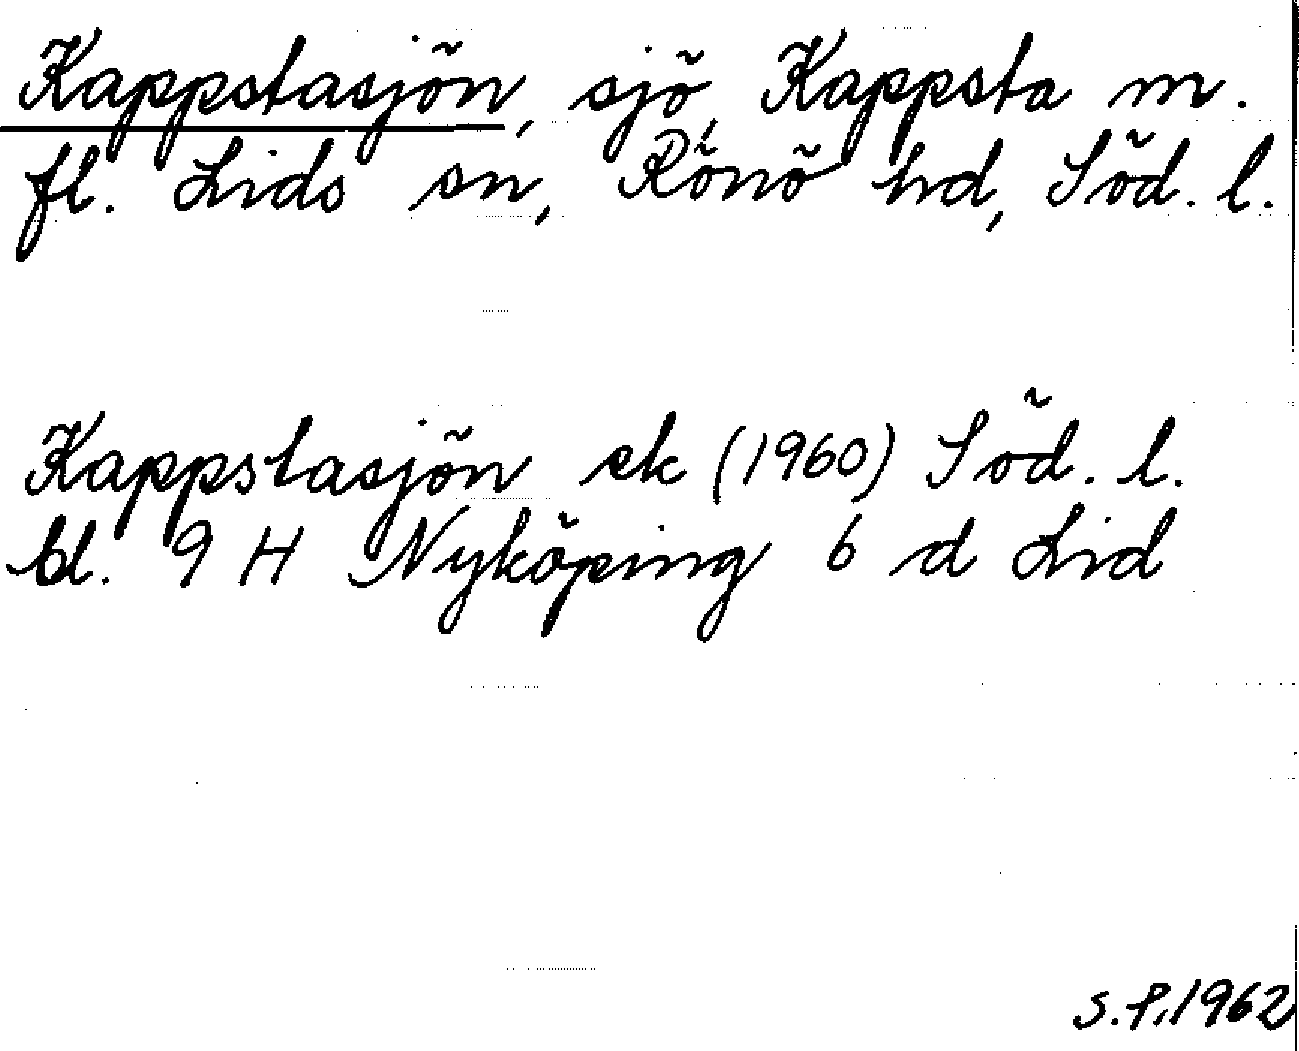 Kappstasjön, sjö, Kappsta m.
fl. Lids sn, Rönö hd, Söd. l.
Kappstasjön ek (1960) Söd. l.
bl. 9 H Nyköping 6 d Lid
S.P. 1962